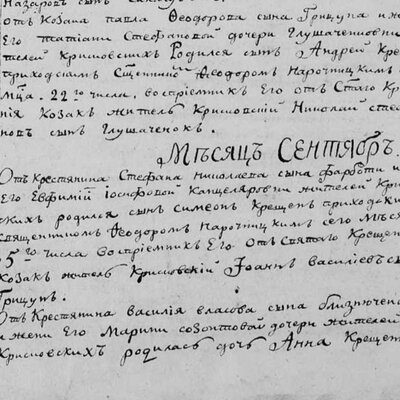 Назаровъ сынъ
отъ Козака павла Ѳеодорова сына Грицуна и ж
Его татіани Стефановой дочери Глушаченкови
телей Крисковскихъ Родился сынъ Андрей Кре
приходскимъ Сщенник Ѳеодоромъ Нарочтицкимъ
Мца. 22го числа. воспріемникъ Его отъ Стаго Кр
нія Козакъ житель Крисковскій Николай сте
новъ сынъ Глушаченокъ.
Мѣсяцъ Сентябрь.
Отъ Крестянина Стефана Николаева сына и
Его Евфиміи Іосифовой Канцеляровни жителей Кри
кихъ родился сынъ симеонъ Крещенъ приходски
священникомъ Ѳеодоромъ Нарочтицкимъ сего мѣся
5го числа воспріемникъ Его отъ Святаго Крещен
козакъ житель Крисковскій Іоаннъ василіевъ сы
Грицунъ.
Отъ Крестянина василія власова сына
и жени Его Марини созонтовой дочери жителей
Крисковскихъ родиласъ дочь Анна Крещен